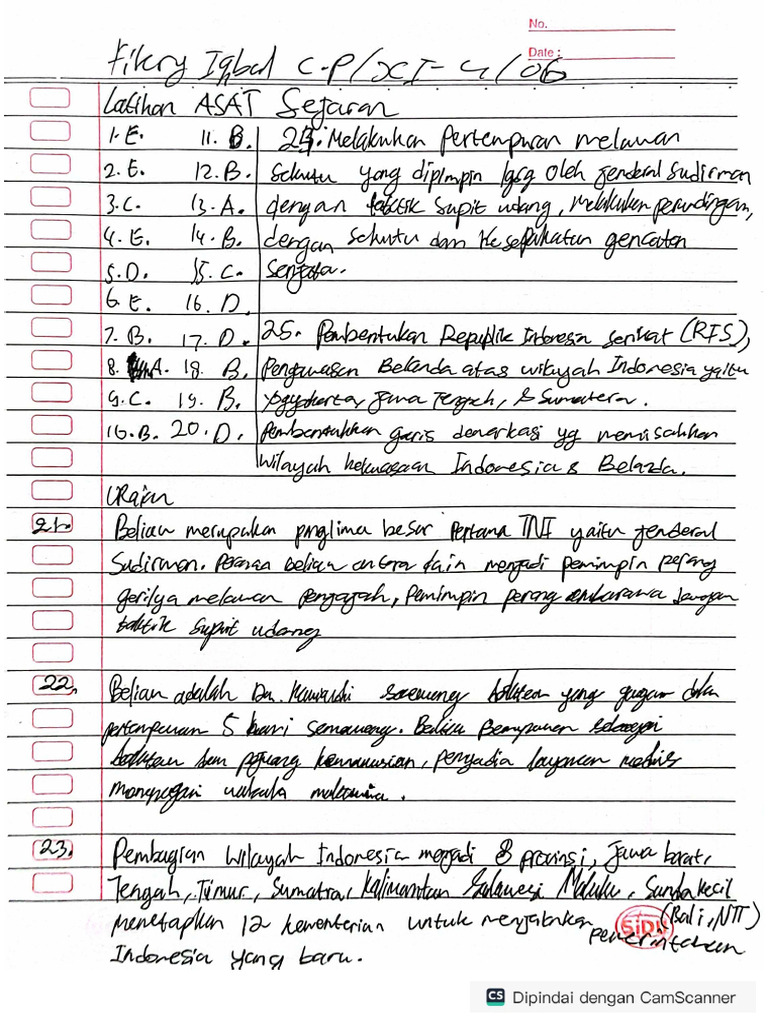 No.
Date :
Fikry Iqbal C.P/XI-4/06
Latihan ASAT Sejarah
1. E. 11. B.
2. E. 12. B.
3. C. 13. A.
4. E. 14. B.
5. D. 15. C.
6. E. 16. D.
7. B. 17. D.
8. A. 18. B.
9. C. 19. B.
10. B. 20. D.
24. Melakukan Pertempuran melawan
Sekutu yang dipimpin lgsg oleh Jenderal Sudirman
dengan taktik Supit udang, Melakukan perundingan,
dengan Sekutu dan Kesepakatan gencatan
Senjata.
25. Pembentukan Republik Indonesia Serikat (RIS),
Pengawasan Belanda atas wilayah Indonesia yaitu
Yogyakarta, Jawa Tengah, & Sumatera.
Pembentukkan garis demarkasi yg memisahkan
wilayah kekuasaan Indonesia & Belanda.
URaian
21. Beliau merupakan panglima besar Pertama TNI yaitu Jenderal
Sudirman. Peranan beliau antara lain menjadi pemimpin perang
gerilya melawan Penjajah, Pemimpin perang ambarawa dengan
taktik Supit udang
22. Beliau adalah Dr. Kariadi Seorang dokter yang gugur dalam
pertempuran 5 hari Semarang. Beliau berperan sebagai
dokter dan pejuang kemanusiaan, penyedia layanan medis
menangani malaria.
23. Pembagian Wilayah Indonesia menjadi 8 provinsi, Jawa barat,
Tengah, Timur, Sumatra, Kalimantan Sulawesi Maluku, Sunda kecil
(Bali, NTT)
menetapkan 12 kementerian untuk menjalankan pemerintahan
Indonesia yang baru.
SiDU
CS Dipindai dengan CamScanner